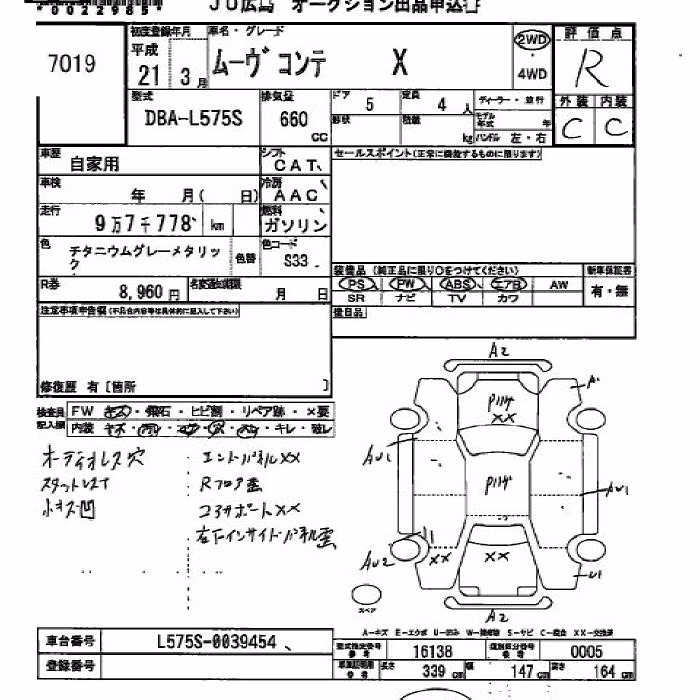 *0022985*
JU広島 オークション出品申込書
7019
初度登録年月
平成
21 3月
車名・グレード
ムーヴコンテ X
2WD
・
4WD
評価点
R
外装 内装
C C
型式
DBA-L575S
排気量
660
CC
ドア 5
定員 4 人
形状
積載 kg
ディーラー・並行
モデル年式 年
ハンドル 左・右
車歴
自家用
シフト
CAT
セールスポイント(正常に機能するものに限ります)
車検
年 月( 日)
冷房
AAC
走行
9万7千778 km
燃料
ガソリン
色
チタニウムグレーメタリック
色替
色コード
S33
装備品(純正品に限り○をつけてください)
新車保証書
PS PW ABS エアB AW
有・無
SR ナビ TV カワ
R券
8,960円
名変通知期限
月 日
後日品
注意事項申告欄(不具合内容等は具体的に記入して下さい)
修復歴 有〔箇所 〕
検査員
記入欄
FW キズ・飛石・ヒビ割・リペア跡・×要
内装 キレ・破レ
オーディオレス穴
エンドパネルXX
Rフロア歪
コアサポートXX
右下インサイドパネル歪
A2
XX
AU1
AU2
XX
XX
A2
スペア
A-キズ E-エクボ U-凹み W-補修跡 S-サビ C-腐食 XX-交換済
車台番号
L575S-0039454
登録番号
型式指定番号
参考
16138
類別区分番号
参考
0005
車庫証明用
参考
長さ 339cm
幅 147cm
高さ 164cm